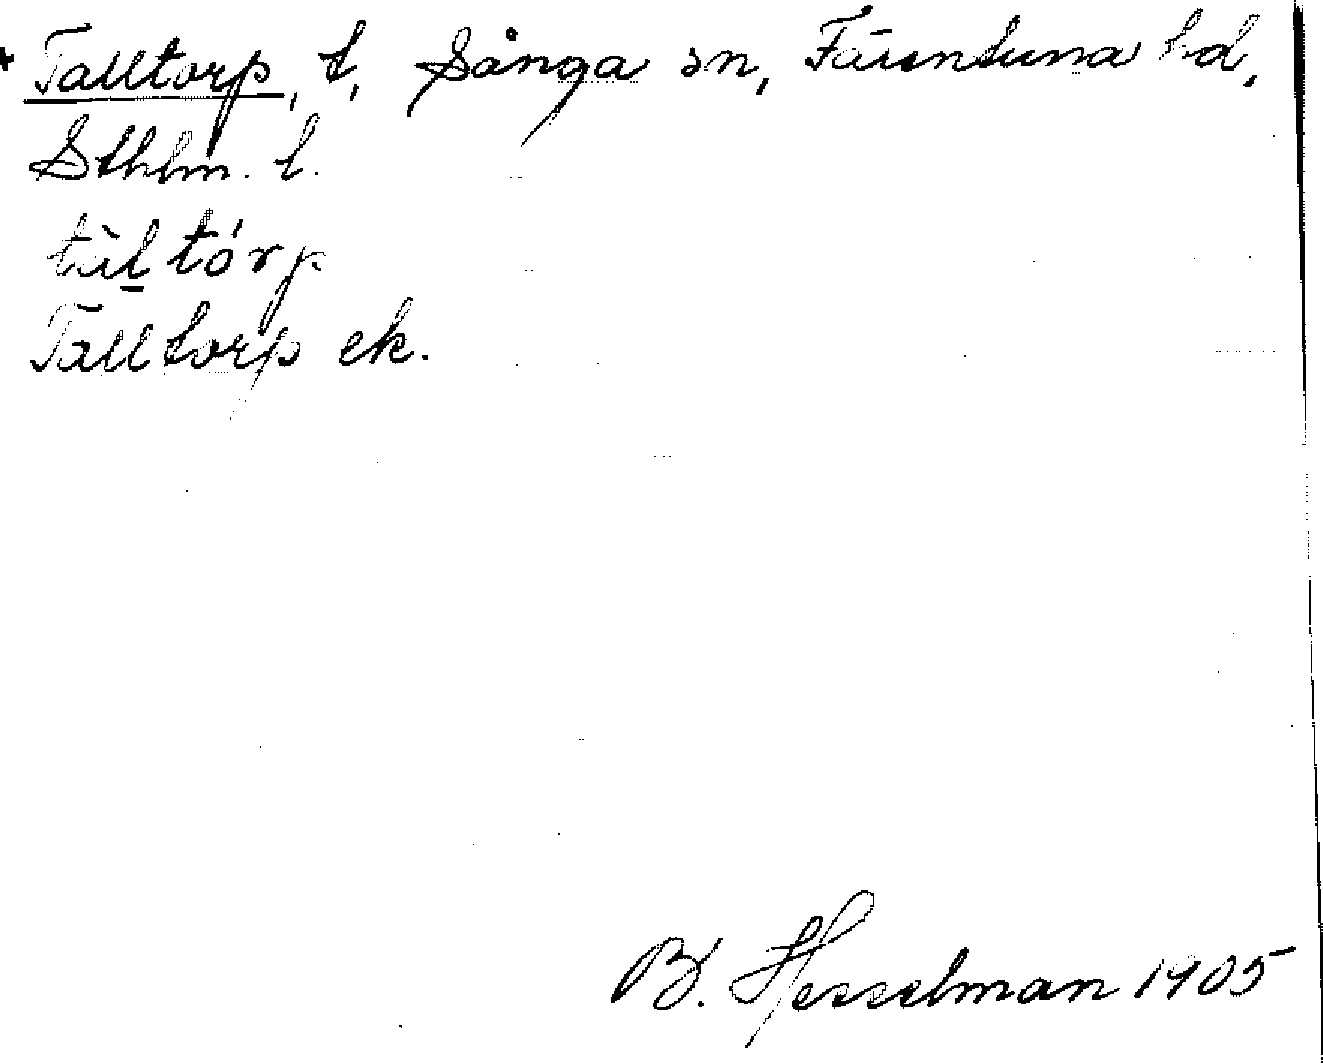 * Talltorp, t, Sånga sn, Färentuna hd,
Sthlm. l.
tàltórp
Talltorp ek.
B. Hesselman 1905